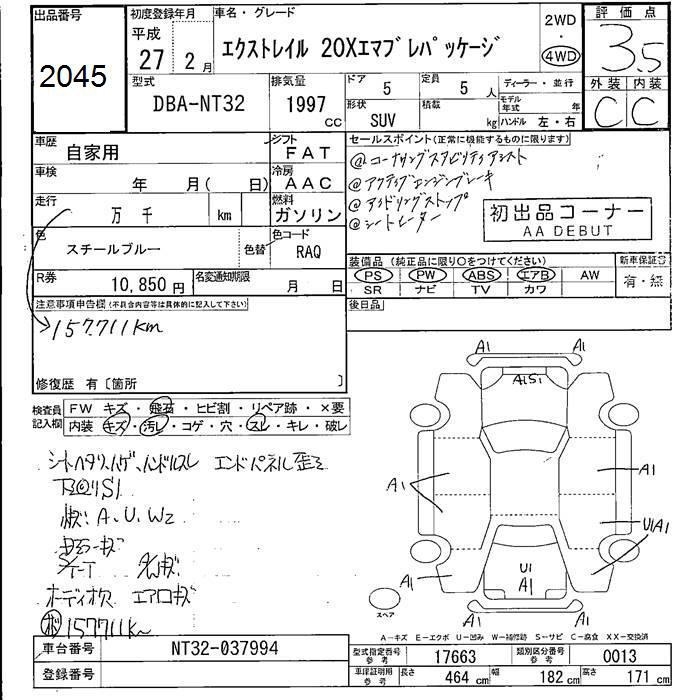 出品番号
2045
初度登録年月
平成
27 2月
車名・グレード
エクストレイル 20Xエマブレパッケージ
2WD
・
4WD
評価点
3.5
外装 内装
C C
型式
DBA-NT32
排気量
1997
cc
ドア
5
定員
5 人
形状
SUV
積載
kg
ディーラー・並行
モデル年式 年
ハンドル 左・右
車歴
自家用
シフト
FAT
車検
年 月( 日)
冷房
AAC
走行
万 千 km
燃料
ガソリン
色
スチールブルー
色替
色コード
RAQ
R券
10,850円
名変通知期限
月 日
セールスポイント(正常に機能するものに限ります)
@コーナリングスタビリティアシスト
@アクティブエンジンブレーキ
@アイドリングストップ
@シートヒーター
初出品コーナー
AA DEBUT
装備品(純正品に限り○をつけてください)
新車保証書
PS PW ABS エアB AW
SR ナビ TV カワ
有・無
後日品
注意事項申告欄(不具合内容等は具体的に記入して下さい)
157,711km
修復歴 有〔箇所 〕
検査員記入欄
FW キズ・飛石・ヒビ割・リペア跡・×要
内装 キズ・汚し・コゲ・穴・スレ・キレ・破し
シートヘタリ、ハゲ、ハンドルスレ エンドパネル歪ミ
A、U、W2
エアロキズ
157711km
A1 A1
A1S1
A1
A1
U1A1
A1
U1
A1
A1 A1
スペア
A-キズ E-エクボ U-凹み W-補修跡 S-サビ C-腐食 XX-交換済
車台番号
NT32-037994
登録番号
型式指定番号
参考
17663
類別区分番号
参考
0013
車庫証明用
参考
長さ
464 cm
幅
182 cm
高さ
171 cm